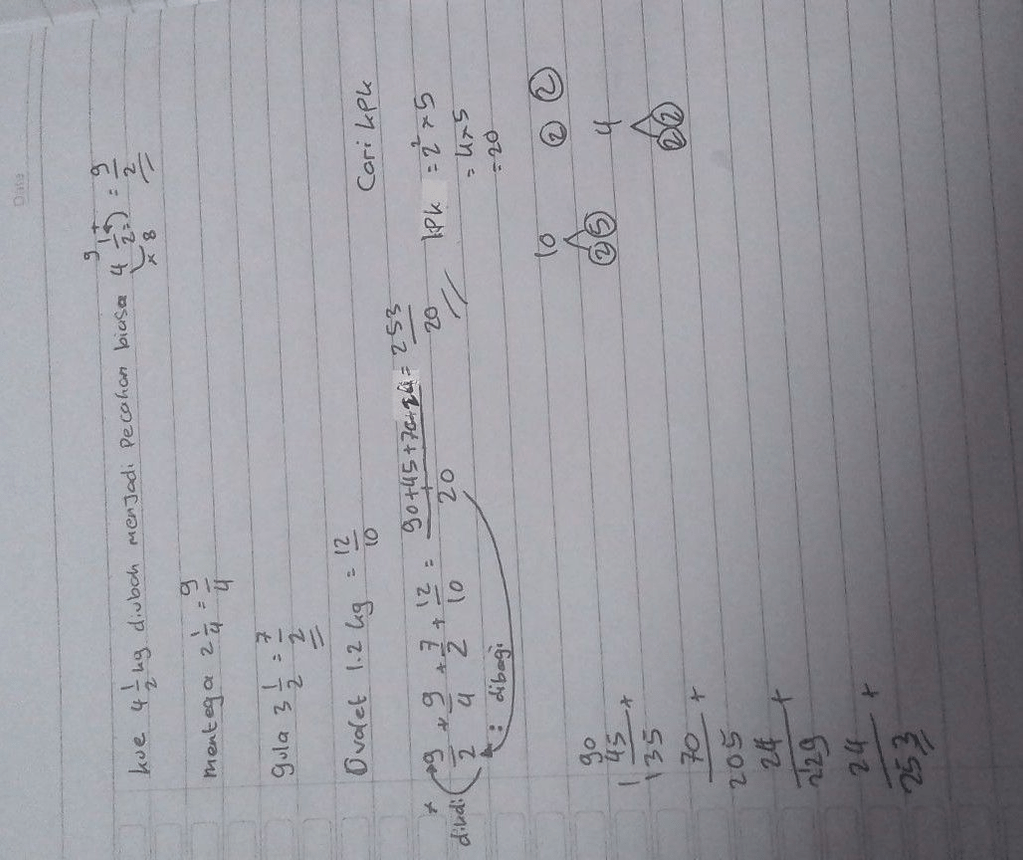 Date
kue 4 1/2 kg diubah menjadi pecahan biasa 4 1/2 = 9/2
9
+
x 8
mentega 2 1/4 = 9/4
gula 3 1/2 = 7/2
Ovalet 1.2 kg = 12/10
Cari kpk
x 9/2 + 9/4 + 7/2 + 12/10 = 90+45+70+24/20 = 253/20
: dibagi
kpk = 2² x 5
= 4 x 5
= 20
10
2 5
2 2
4
2 2
90
45 +
1
135
70 +
205
24 +
229
24 +
253